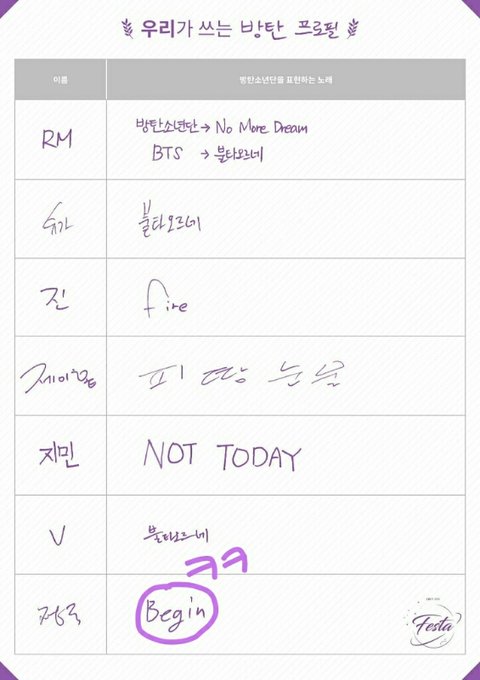 우리가 쓰는 방탄 프로필
이름 방탄소년단을 표현하는 노래
RM 방탄소년단 → No More Dream
BTS → 불타오르네
슈가 불타오르네
진 fire
제이홉 피 땀 눈물
지민 NOT TODAY
V 불타오르네
ㅋㅋ
정국 Begin
Festa